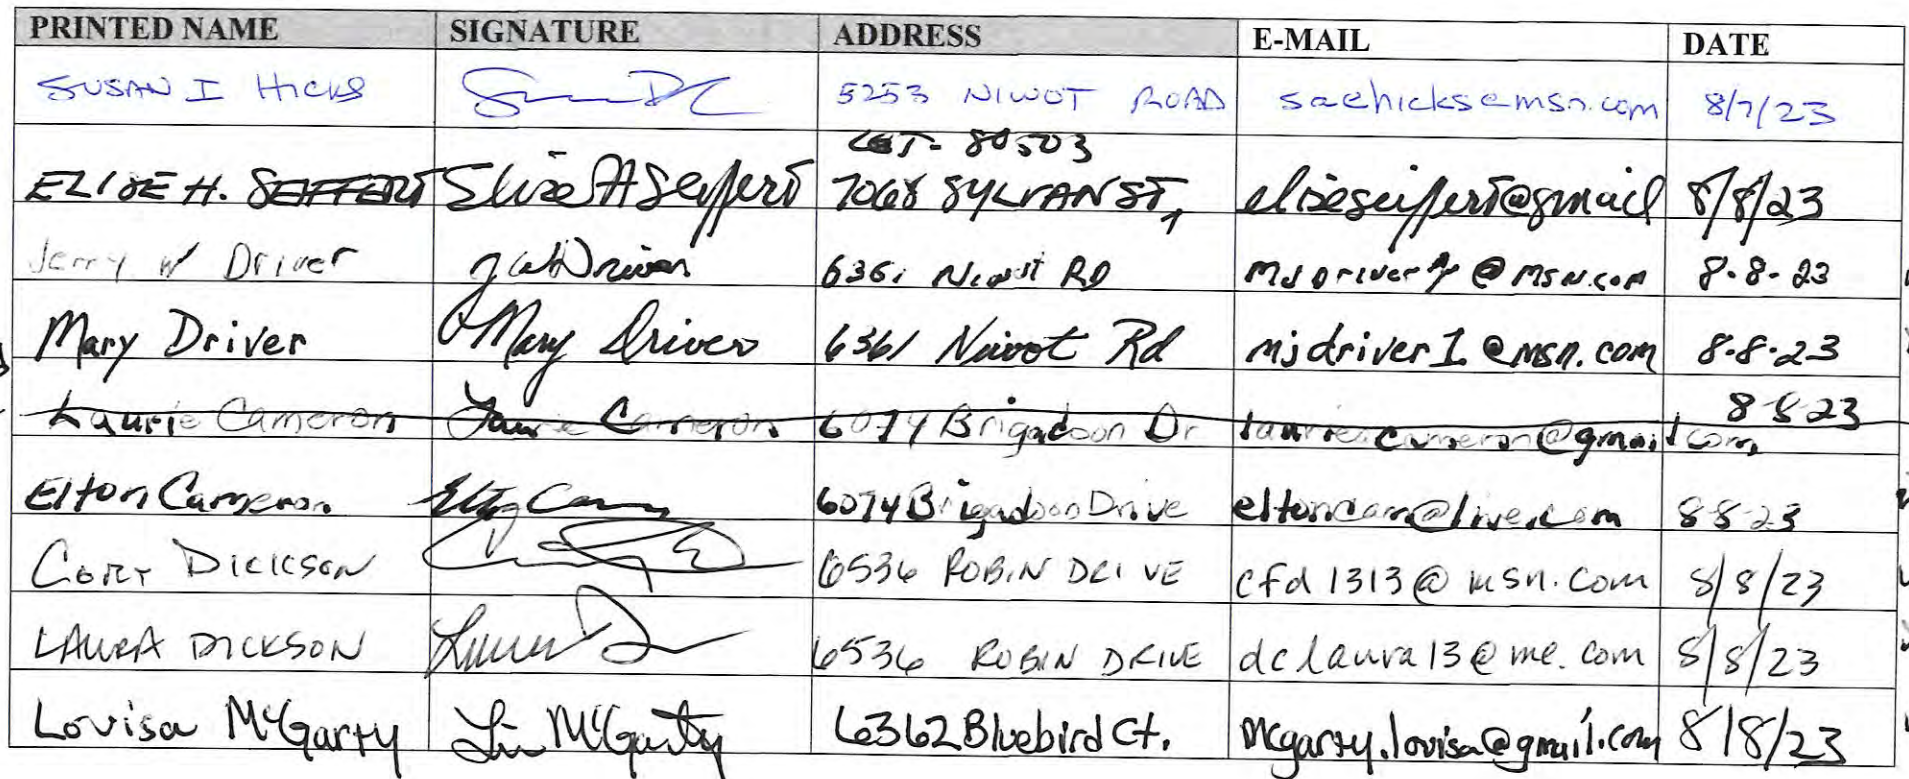 PRINTED NAME SIGNATURE ADDRESS E-MAIL DATE
SUSAN I HICKS 5253 NIWOT ROAD saehicks@msn.com 8/7/23
80503
ELISE H. SEIFFERT Elise H Seiffert 7068 SYLVAN ST, eliseseiffert@gmail 8/8/23
Jerry W Driver 6361 Niwot RD @MSN.COM 8-8-23
Mary Driver Mary Driver 6361 Niwot Rd mjdriver1@msn.com 8-8-23
Laurie Cameron Laurie Cameron 6074 Brigadoon Dr lauriecameron@gmail.com 8-8-23
Elton Cameron 6074 Brigadoon Drive eltoncam@live.com 8-8-23
CORY DICKSON 6536 ROBIN DRIVE cfd1313@msn.com 8/8/23
LAURA DICKSON 6536 ROBIN DRIVE dclaura13@me.com 8/8/23
Lovisa McGarty McGarty 6362 Bluebird Ct. mcgarty.lovisa@gmail.com 8/8/23